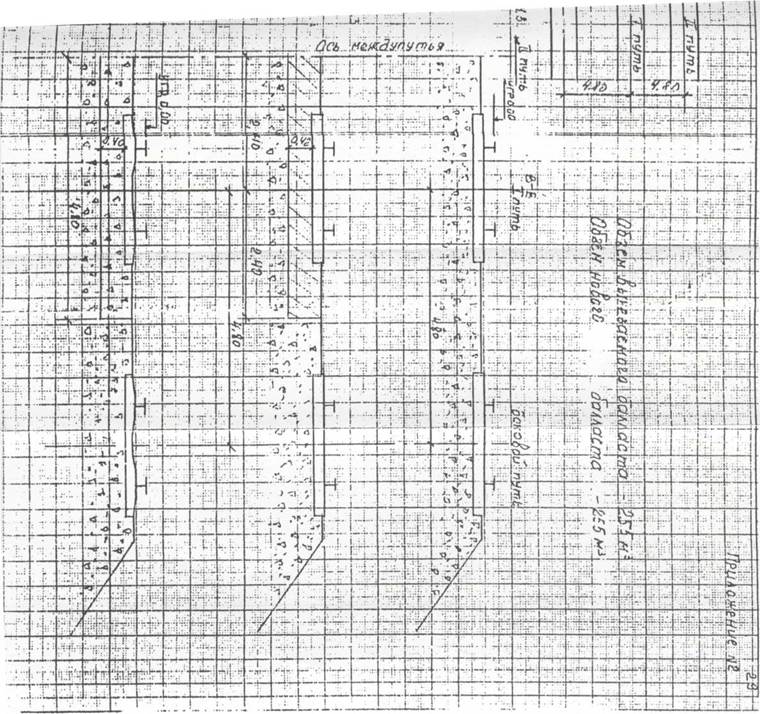 29
Приложение №2
Объем вырезаемого балласта - 255 м³
Объем нового балласта - 255 м³
II путь
I путь
4.80
4.80
II путь
Ось междупутья
I путь
Боковой путь
4,80
0,40
2,40
2,40
4,80
угр 0.00
0,40
4,80